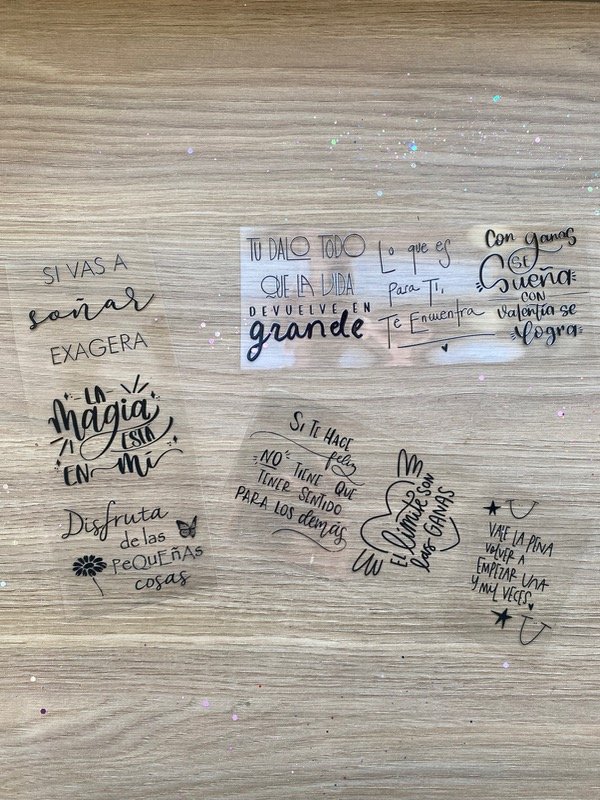 SI VAS A
soñar
EXAGERA
LA
Magia
ESTÁ
EN MÍ
Disfruta
de las
PEQUEÑAS
cosas
TU DALO TODO
QUE LA VIDA
DEVUELVE EN
grande
Lo que es
Para Ti,
Te Encuentra
Con ganas
SE
Sueña
CON
Valentía se
logra
SI TE HACE
feliz
NO TIENE QUE
TENER SENTIDO
PARA LOS demás
EL límite SON
tus GANAS
VALE LA PENA
VOLVER A
EMPEZAR UNA
Y MIL VECES